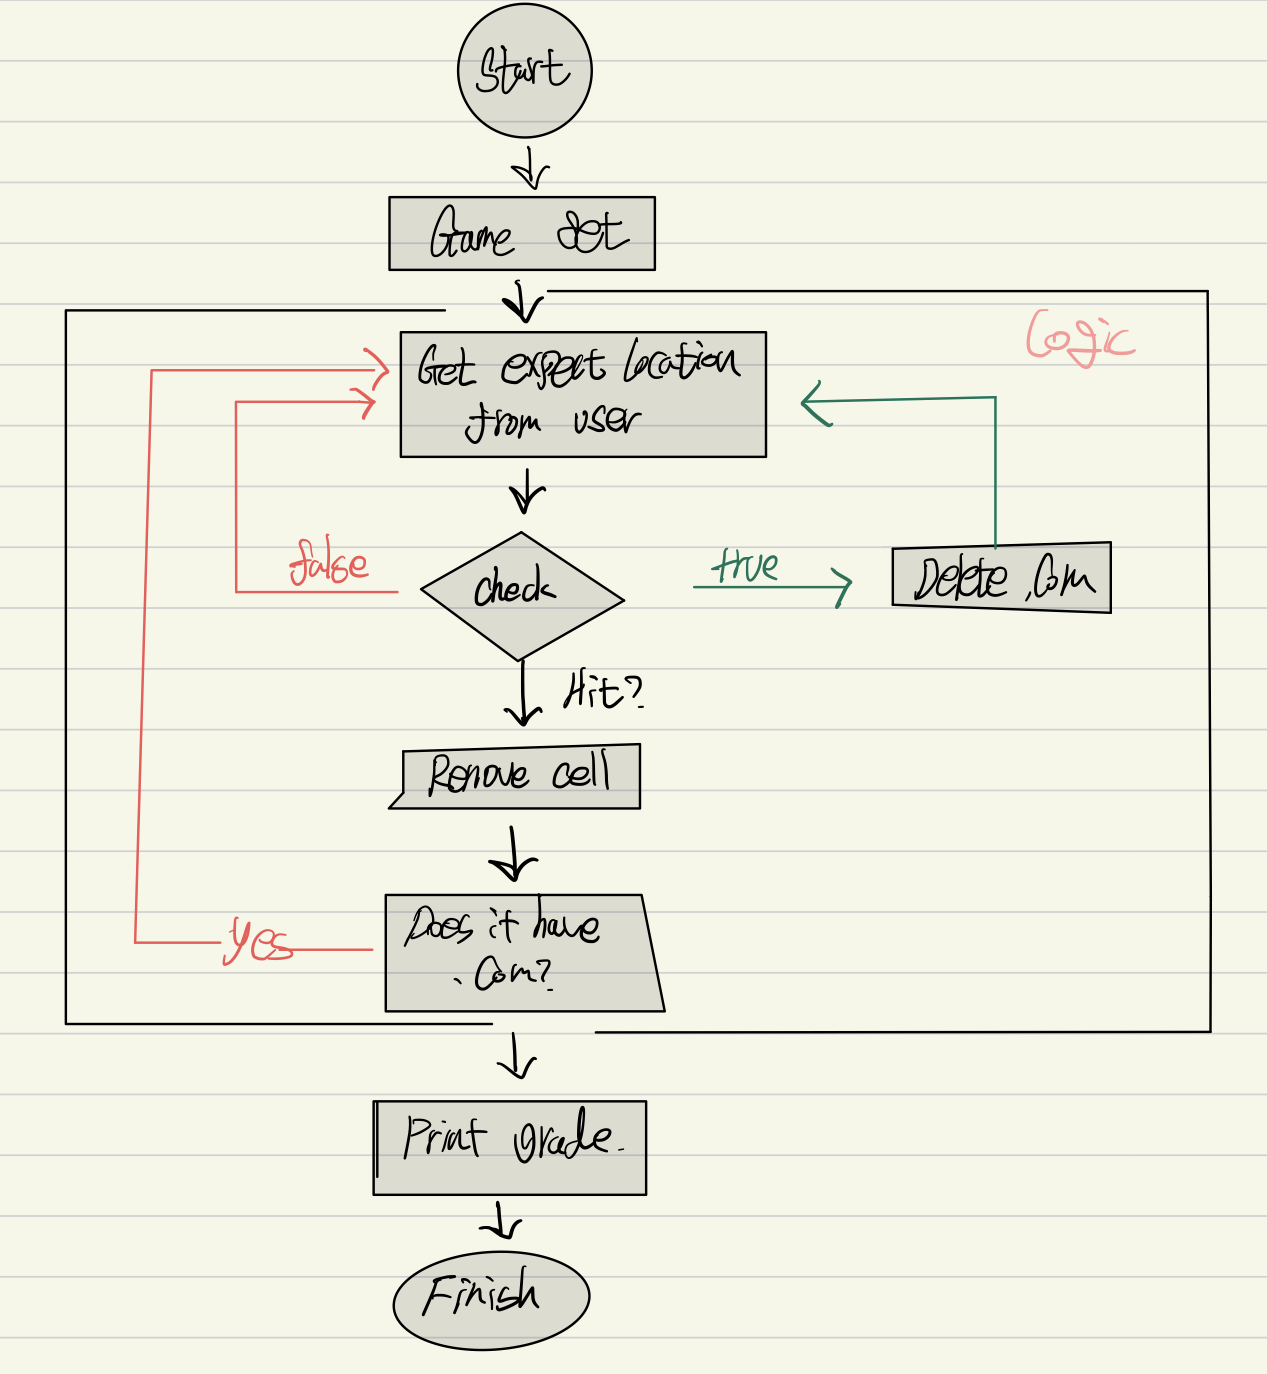 Start
Game Set
Logic
Get expect location
from user
false
check
true
Delete .Com
Hit?
Remove cell
Does it have
.Com?
yes
Print grade.
Finish